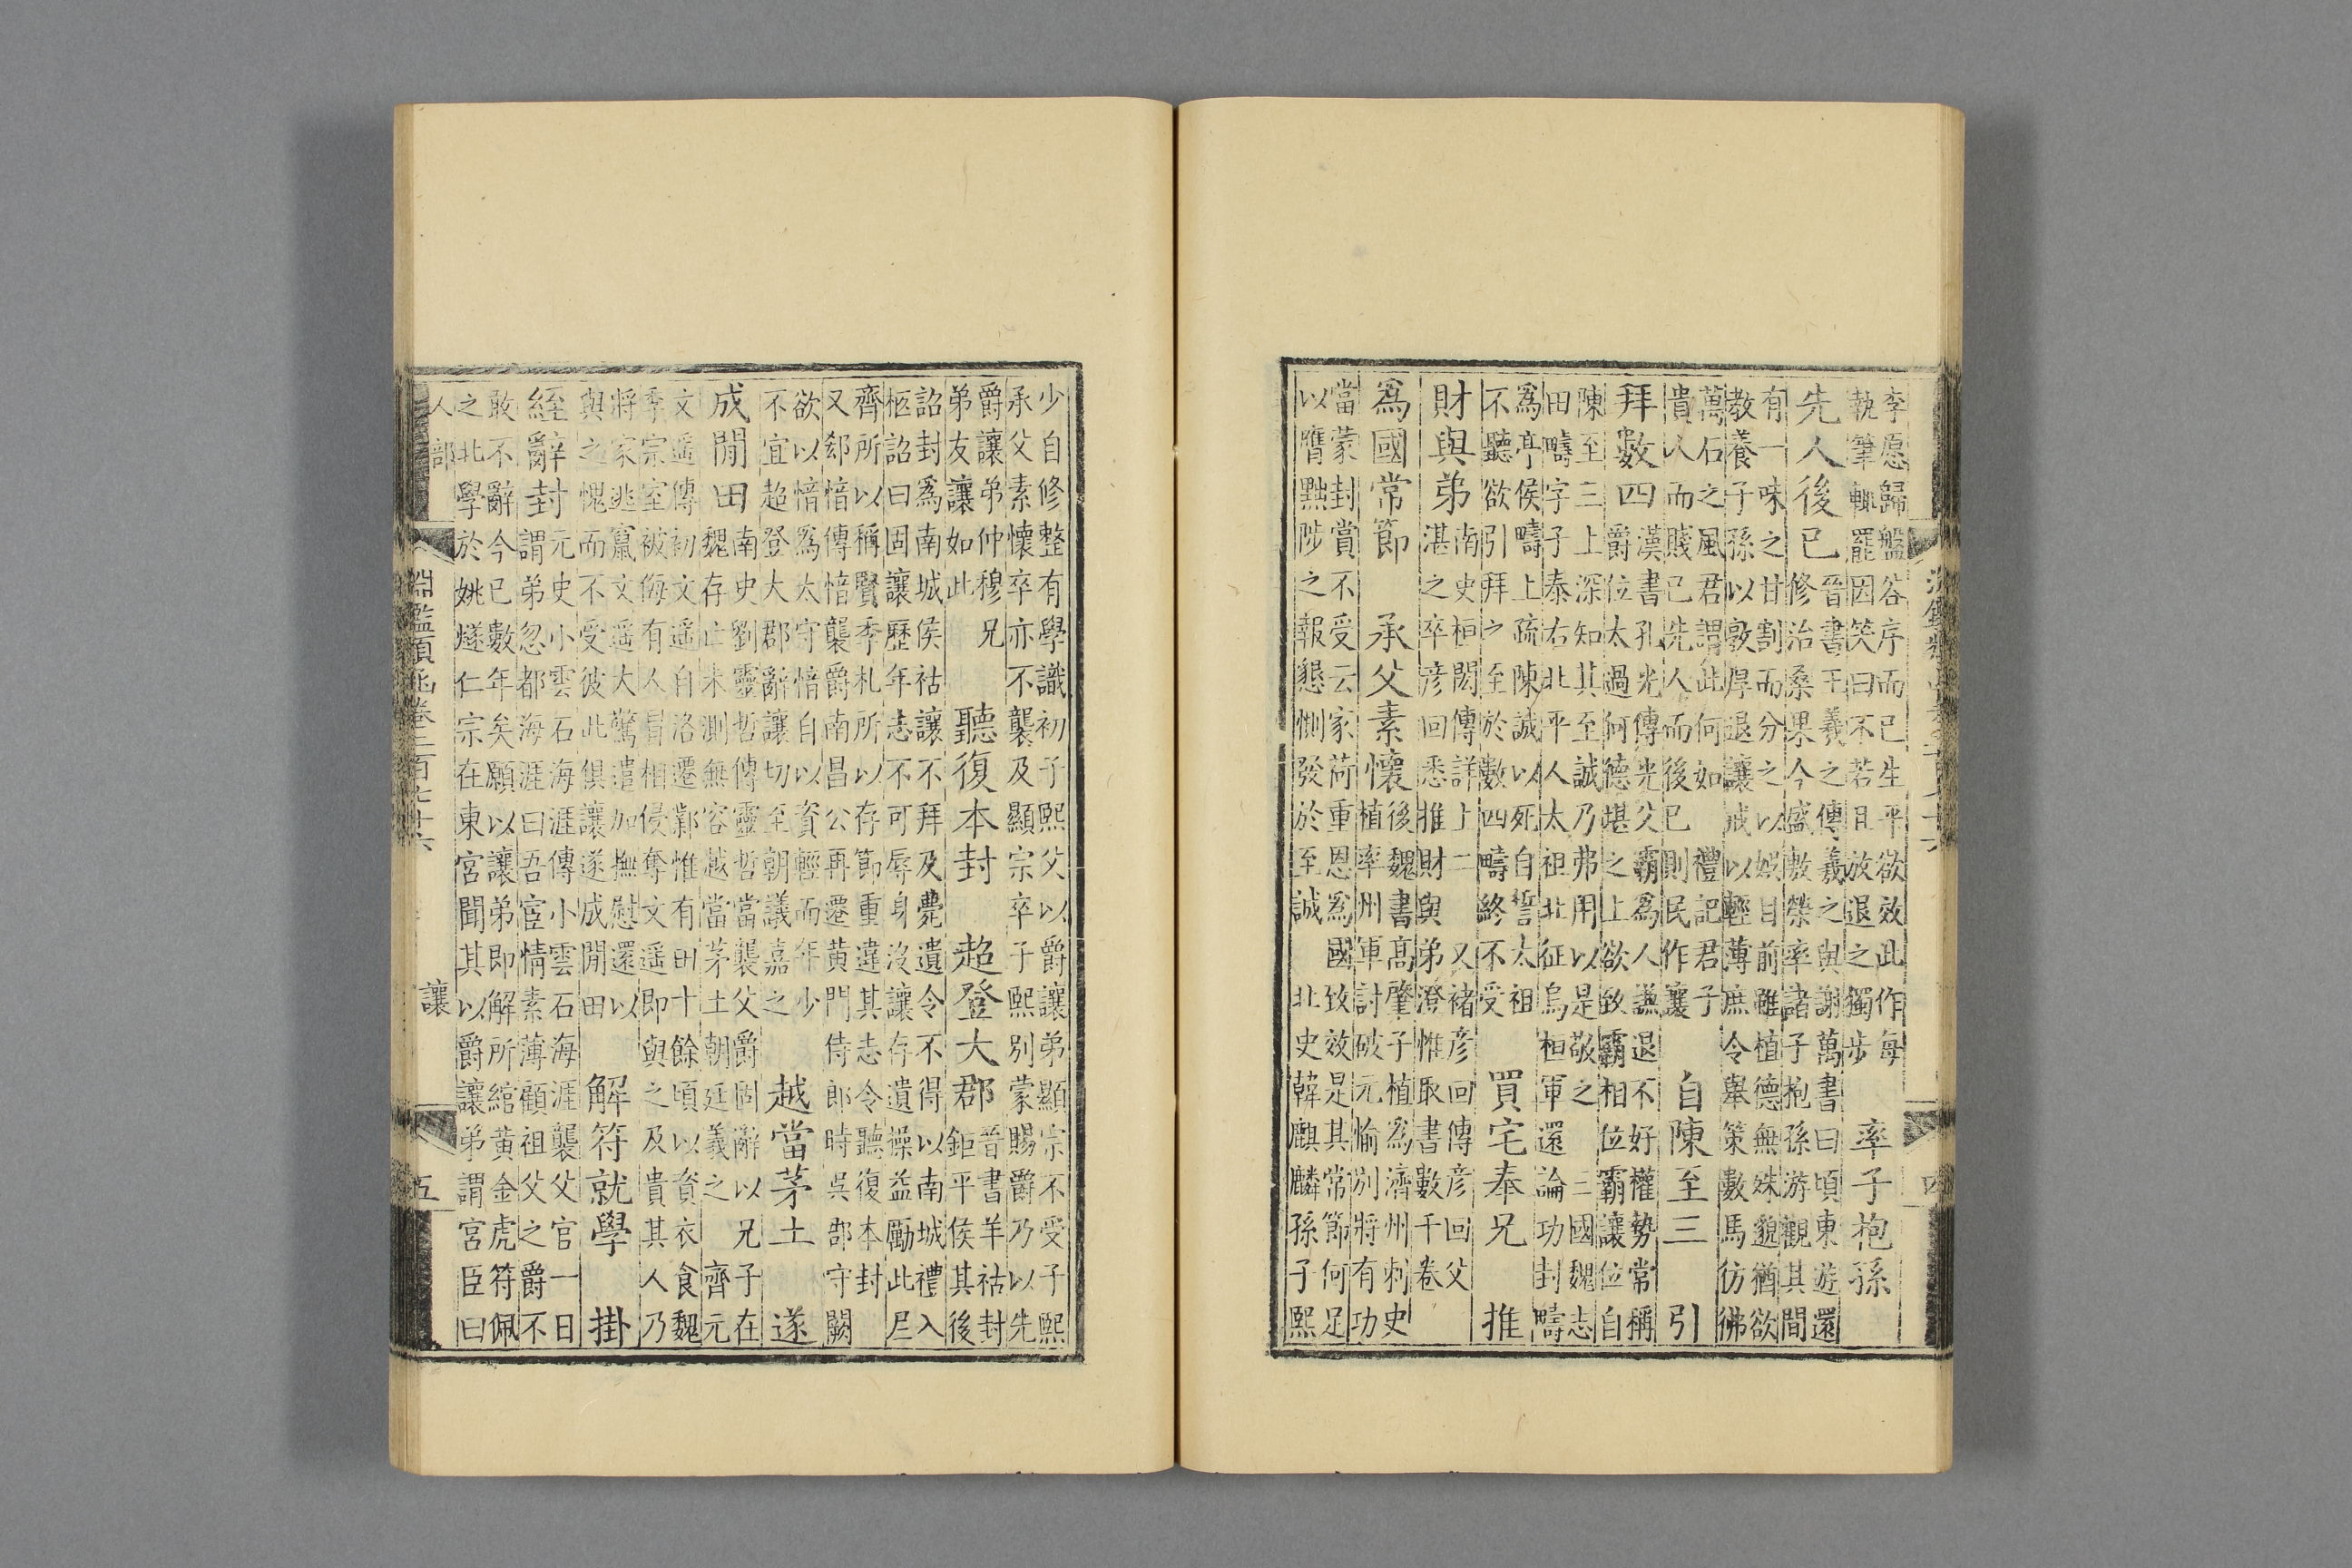 李愿歸盤谷序而已生平欲效此作每
執筆輒罷因笑曰不若且放退之獨步
率子抱孫
先人後已
晉書王羲之傳羲之與謝萬書曰頃東遊還
修治桑果今盛敷榮率諸子抱孫游觀其間
有一味之甘割而分之以娛目前雖植德無殊邈猶欲
教養子孫以敦厚退讓戒以輕薄庶令舉策數馬彷彿
萬石之風君謂此何如 禮記君子
貴人而賤已先人而後已則民作讓
自陳至三 引
拜數四
漢書孔光傳光父霸爲人謙退不好權勢常稱
爵位太過何德堪之上欲致霸相位霸讓位自
陳至三上深知其至誠乃弗用以是敬之 三國魏志
田疇字子泰右北平人太祖北征烏桓軍還論功封疇
爲亭侯疇上疏陳誠以死自誓太祖
不聽欲引拜之至於數四疇終不受
買宅奉兄 推
財與弟
南史桓閎傳詳上二 又褚彥回傳彥回父
湛之卒彥回悉推財與弟澄惟取書數千卷
爲國常節 承父素懷
後魏書高肇子植爲濟州刺史
植率州軍討破元愉別將有功
當蒙封賞不受云家荷重恩爲國致效是其常節何足
以膺黜陟之報懇惻發於至誠 北史韓麒麟孫子熙
少自修整有學識初子熙父以爵讓弟顯宗不受子熙
承父素懷卒亦不襲及顯宗卒子熙別蒙賜爵乃以先
爵讓弟仲穆兄
弟友讓如此
聽復本封 超登大郡
晉書羊祜封
鉅平侯其後
詔封爲南城侯祜讓不拜及薨遺令不得以南城禮入
柩詔曰固讓歷年志不可辱身沒讓存遺操益勵此𡰥
齊所以稱賢季札所以存節重違其志令聽復本封
又郄愔傳愔襲爵南昌公再遷黃門侍郎時吳郡守闕
欲以愔爲太守愔自以資輕而年少
不宜超登大郡辭讓切至朝議嘉之
越當茅土 遂
成閒田
南史劉靈哲傳靈哲當襲父爵固辭以兄子在
魏存亡未測無容越當茅土朝廷義之 齊元
文遥傳初文遥自洛遷鄴惟有田十餘頃以資衣食魏
季宗室被侮有人冒相侵奪文遥即與之及貴其人乃
將家逃竄文遥大驚遣加撫慰還以
與之愧而不受彼此俱讓遂成閒田
解符就學 掛
絰辭封
元史小雲石海涯傳小雲石海涯襲父官一日
謂弟忽都海涯曰吾宦情素薄顧祖父之爵不
敢不辭今已數年矣願以讓弟即解所綰黃金虎符佩
之北學於姚燧仁宗在東宮聞其以爵讓弟謂宮臣曰
人部
淵鑑類函卷二百七十六 讓 五